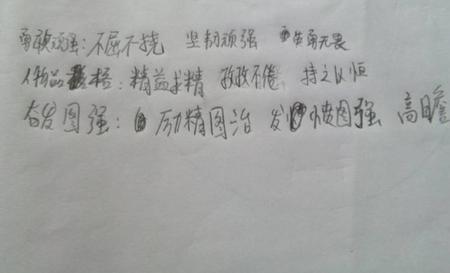 勇敢顽强：不屈不挠 坚韧顽强 英勇无畏
人物品格：精益求精 孜孜不倦 持之以恒
奋发图强：励精图治 发愤图强 高瞻